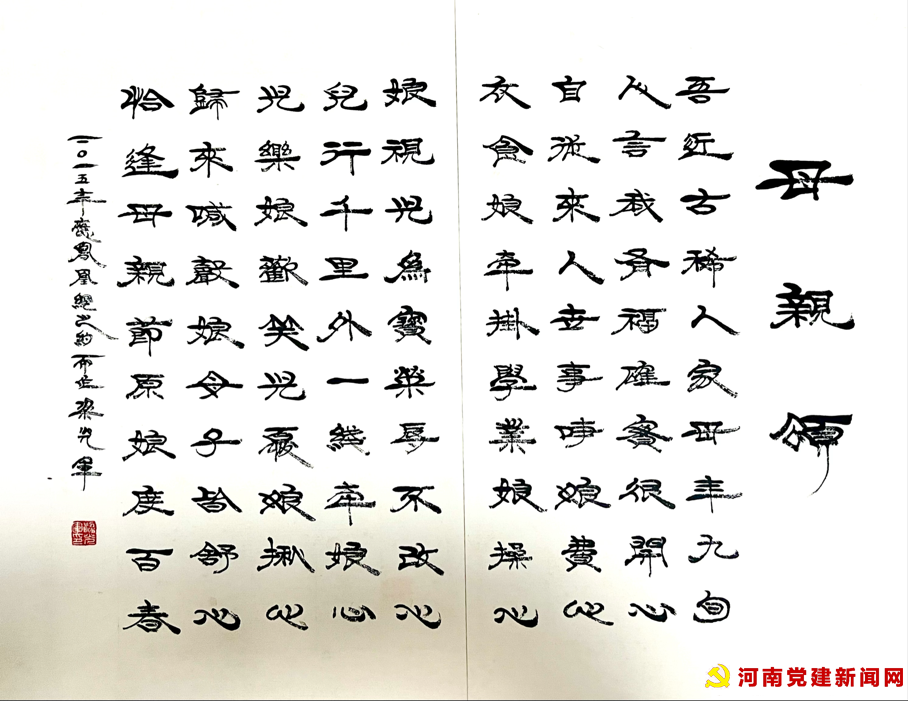 母親頌
吾近古稀人家母年九旬
人言我有福確實很開心
自從來人世事事娘費心
衣食娘牽掛學業娘操心
娘視兒為寶榮辱不改心
兒行千里外一綫牽娘心
兒樂娘歡笑兒憂娘揪心
歸來喊聲娘母子皆舒心
恰逢母親節原娘度百春
二〇一五年應鳳凰之約而作
河南党建新闻网